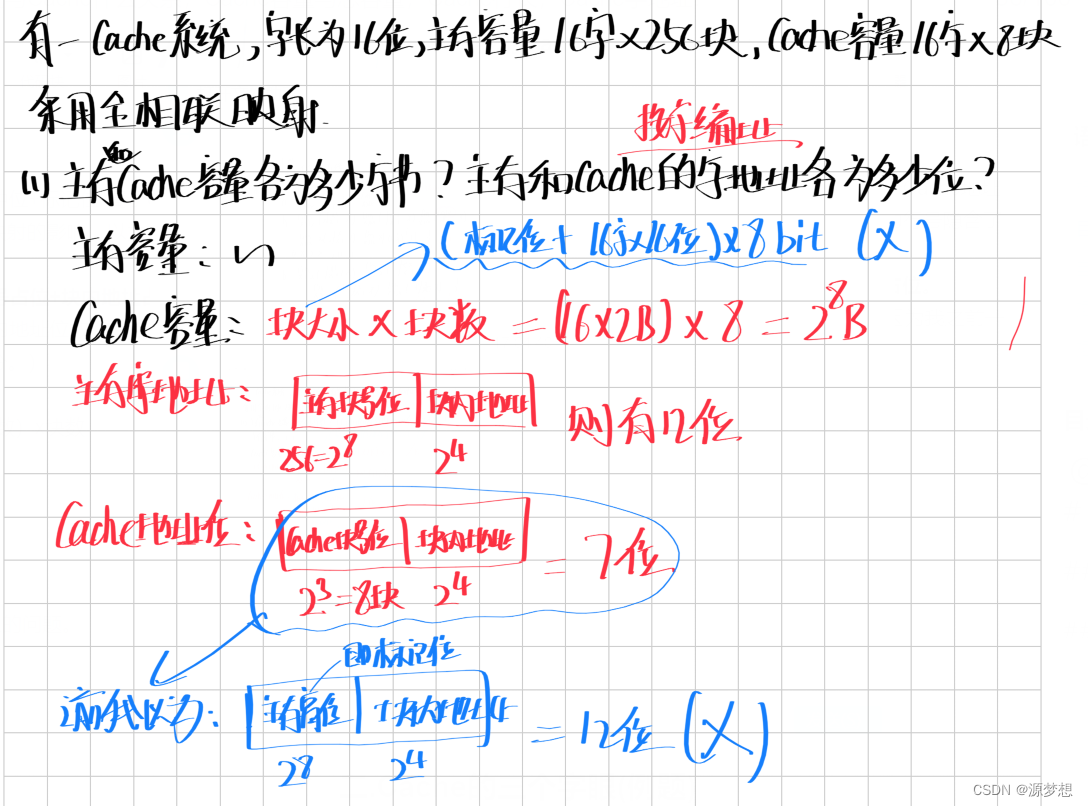 有一Cache系统,字长为16位,主存容量16字×256块,Cache容量16字×8块
采用全相联映射.
按字编址
(1) 主存和Cache容量各为多少字节?主存和Cache的字地址各为多少位?
主存容量: (标记位+16字×16位)×8bit (X)
Cache容量: 块大小×块数=(16×2B)×8=2^8B
主存字地址: |主存块号位|块内地址| 则有12位
256=2^8 2^4
Cache地址位: |Cache块号位|块内地址| = 7位
2^3=8块 2^4
即标记位
之前我以为: |主存高位|块内地址| = 12位 (X)
2^8 2^4
CSDN @源梦想